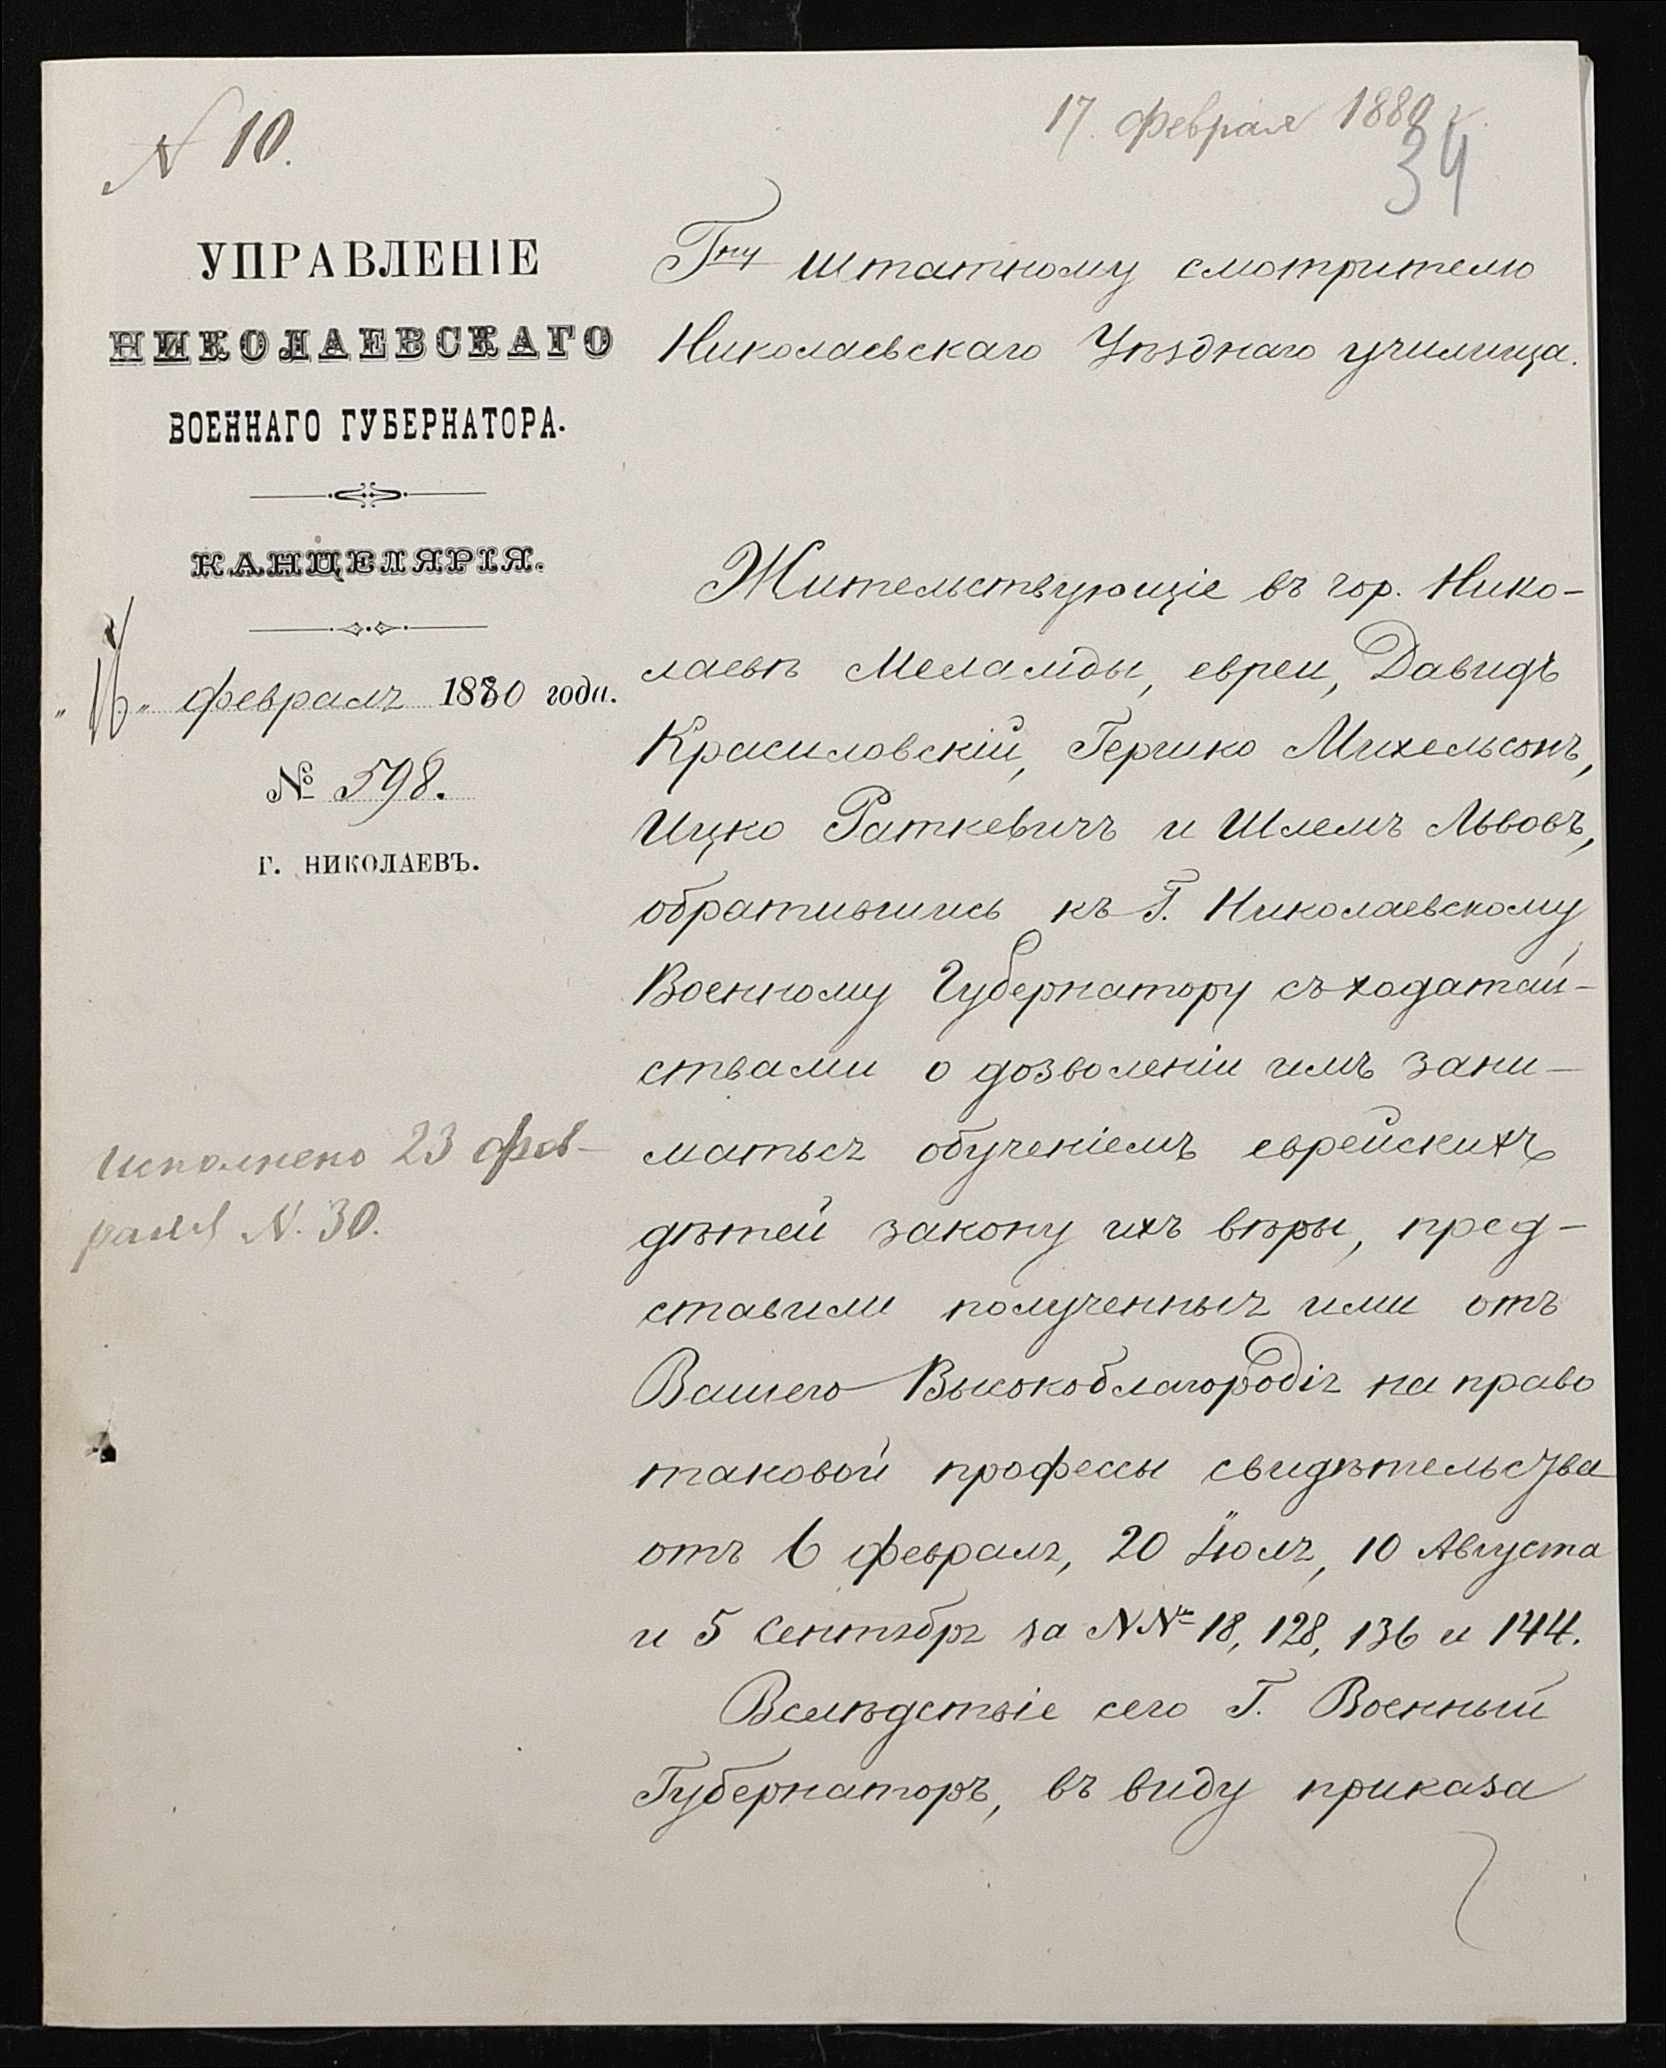 N 10.
17. Февраля 1880 г.
34
УПРАВЛЕНІЕ
НИКОЛАЕВСКАГО
ВОЕННАГО ГУБЕРНАТОРА.
КАНЦЕЛЯРІЯ.
„16„ февраля 1880 года.
№ 598.
Г. НИКОЛАЕВЪ.
Исполнено 23 фев-
раля N. 30.
Гну штатному смотрителю
Николаевскаго Уѣзднаго училища.
Жительствующіе въ гор. Нико-
лаевѣ Меламды, евреи, Давидъ
Красиловскій, Гершко Михельсонъ,
Ицко Раткевичъ и Шлемъ Львовъ,
обратившись къ Г. Николаевскому
Военному Губернатору съ ходатай-
ствами о дозволеніи имъ зани-
маться обученіемъ еврейскихъ
дѣтей закону ихъ вѣры, пред-
ставили полученныя ими отъ
Вашего Высокоблагородія на право
таковой професы свидѣтельства
отъ 6 февраля, 20 Іюля, 10 Августа
и 5 Сентября за NNº 18, 128, 136 и 144.
Вслѣдствіе сего Г. Военный
Губернаторъ, въ виду приказа